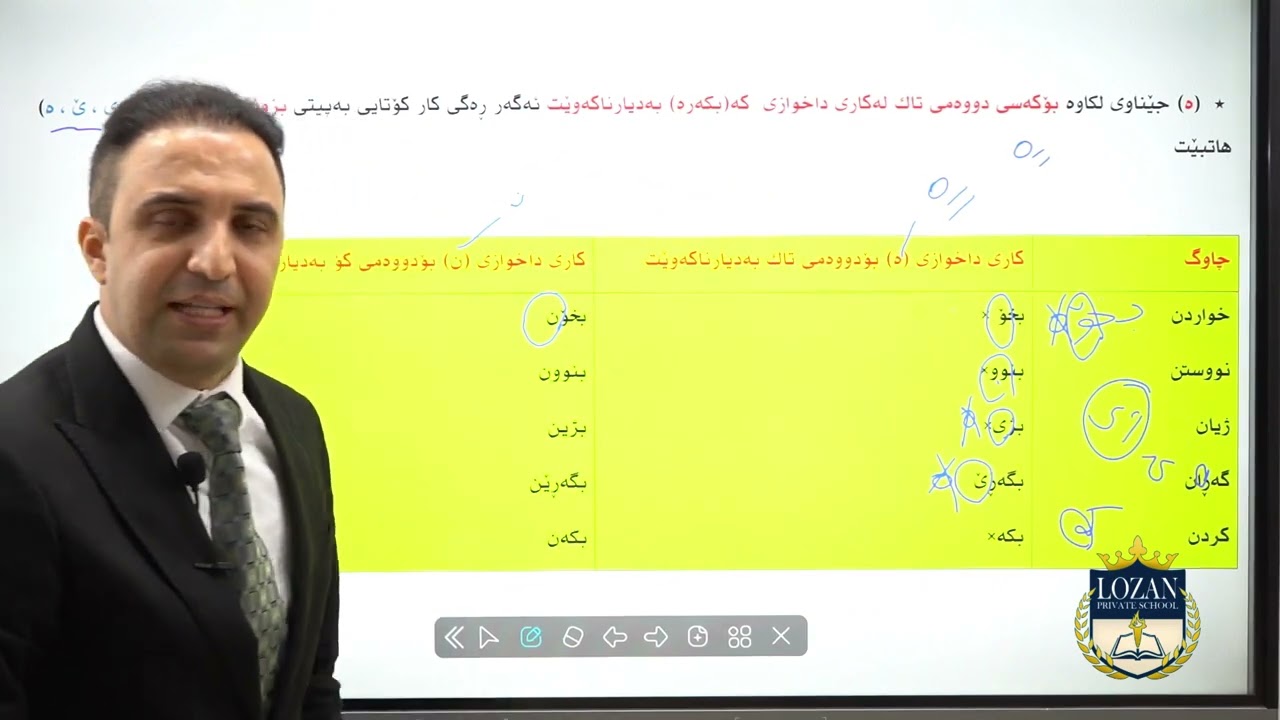 ★ (٥) جێناوی لکاوە بۆکەسی دووەمی تاك لەکاری داخوازی کە(بکەرە) بەدیارناکەوێت ئەگەر ڕەگی کار کۆتایی بەپیتی ، ێ ، ە)
هاتبێت
چاوگ
کاری داخوازی (ە) بۆدووەمی تاك بەدیارناکەوێت
کاری داخوازی (ن) بۆدووەمی کۆ
خواردن
بخۆ ×
بخۆن
نووستن
بنوو×
بنوون
ژیان
بژی×
بژین
گەڕان
بگەڕێ
بگەڕێن
کردن
بکە×
بکەن
LOZAN
PRIVATE SCHOOL